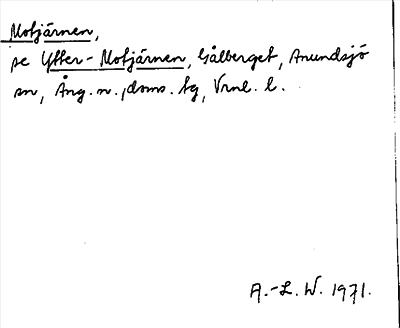 Motjärnen,
se Ytter-Motjärnen, Gålberget, Anundsjö
sn, Ång. n., doms. tg, Vrnl. l.
A.-L. W. 1971.